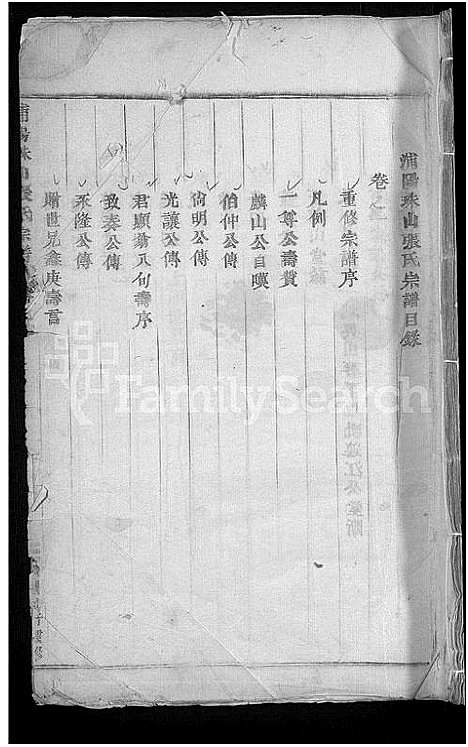 蒲陽珠山張氏宗譜目錄
卷之
重修宗譜序
凡例
一尊公壽贊
麟山公自嘆
伯仲公傳
尚明公傳
光讓公傳
君顯翁八旬壽序
致奏公傳
永隆公傳
贈世兄鑫庚壽言
FamilySearch